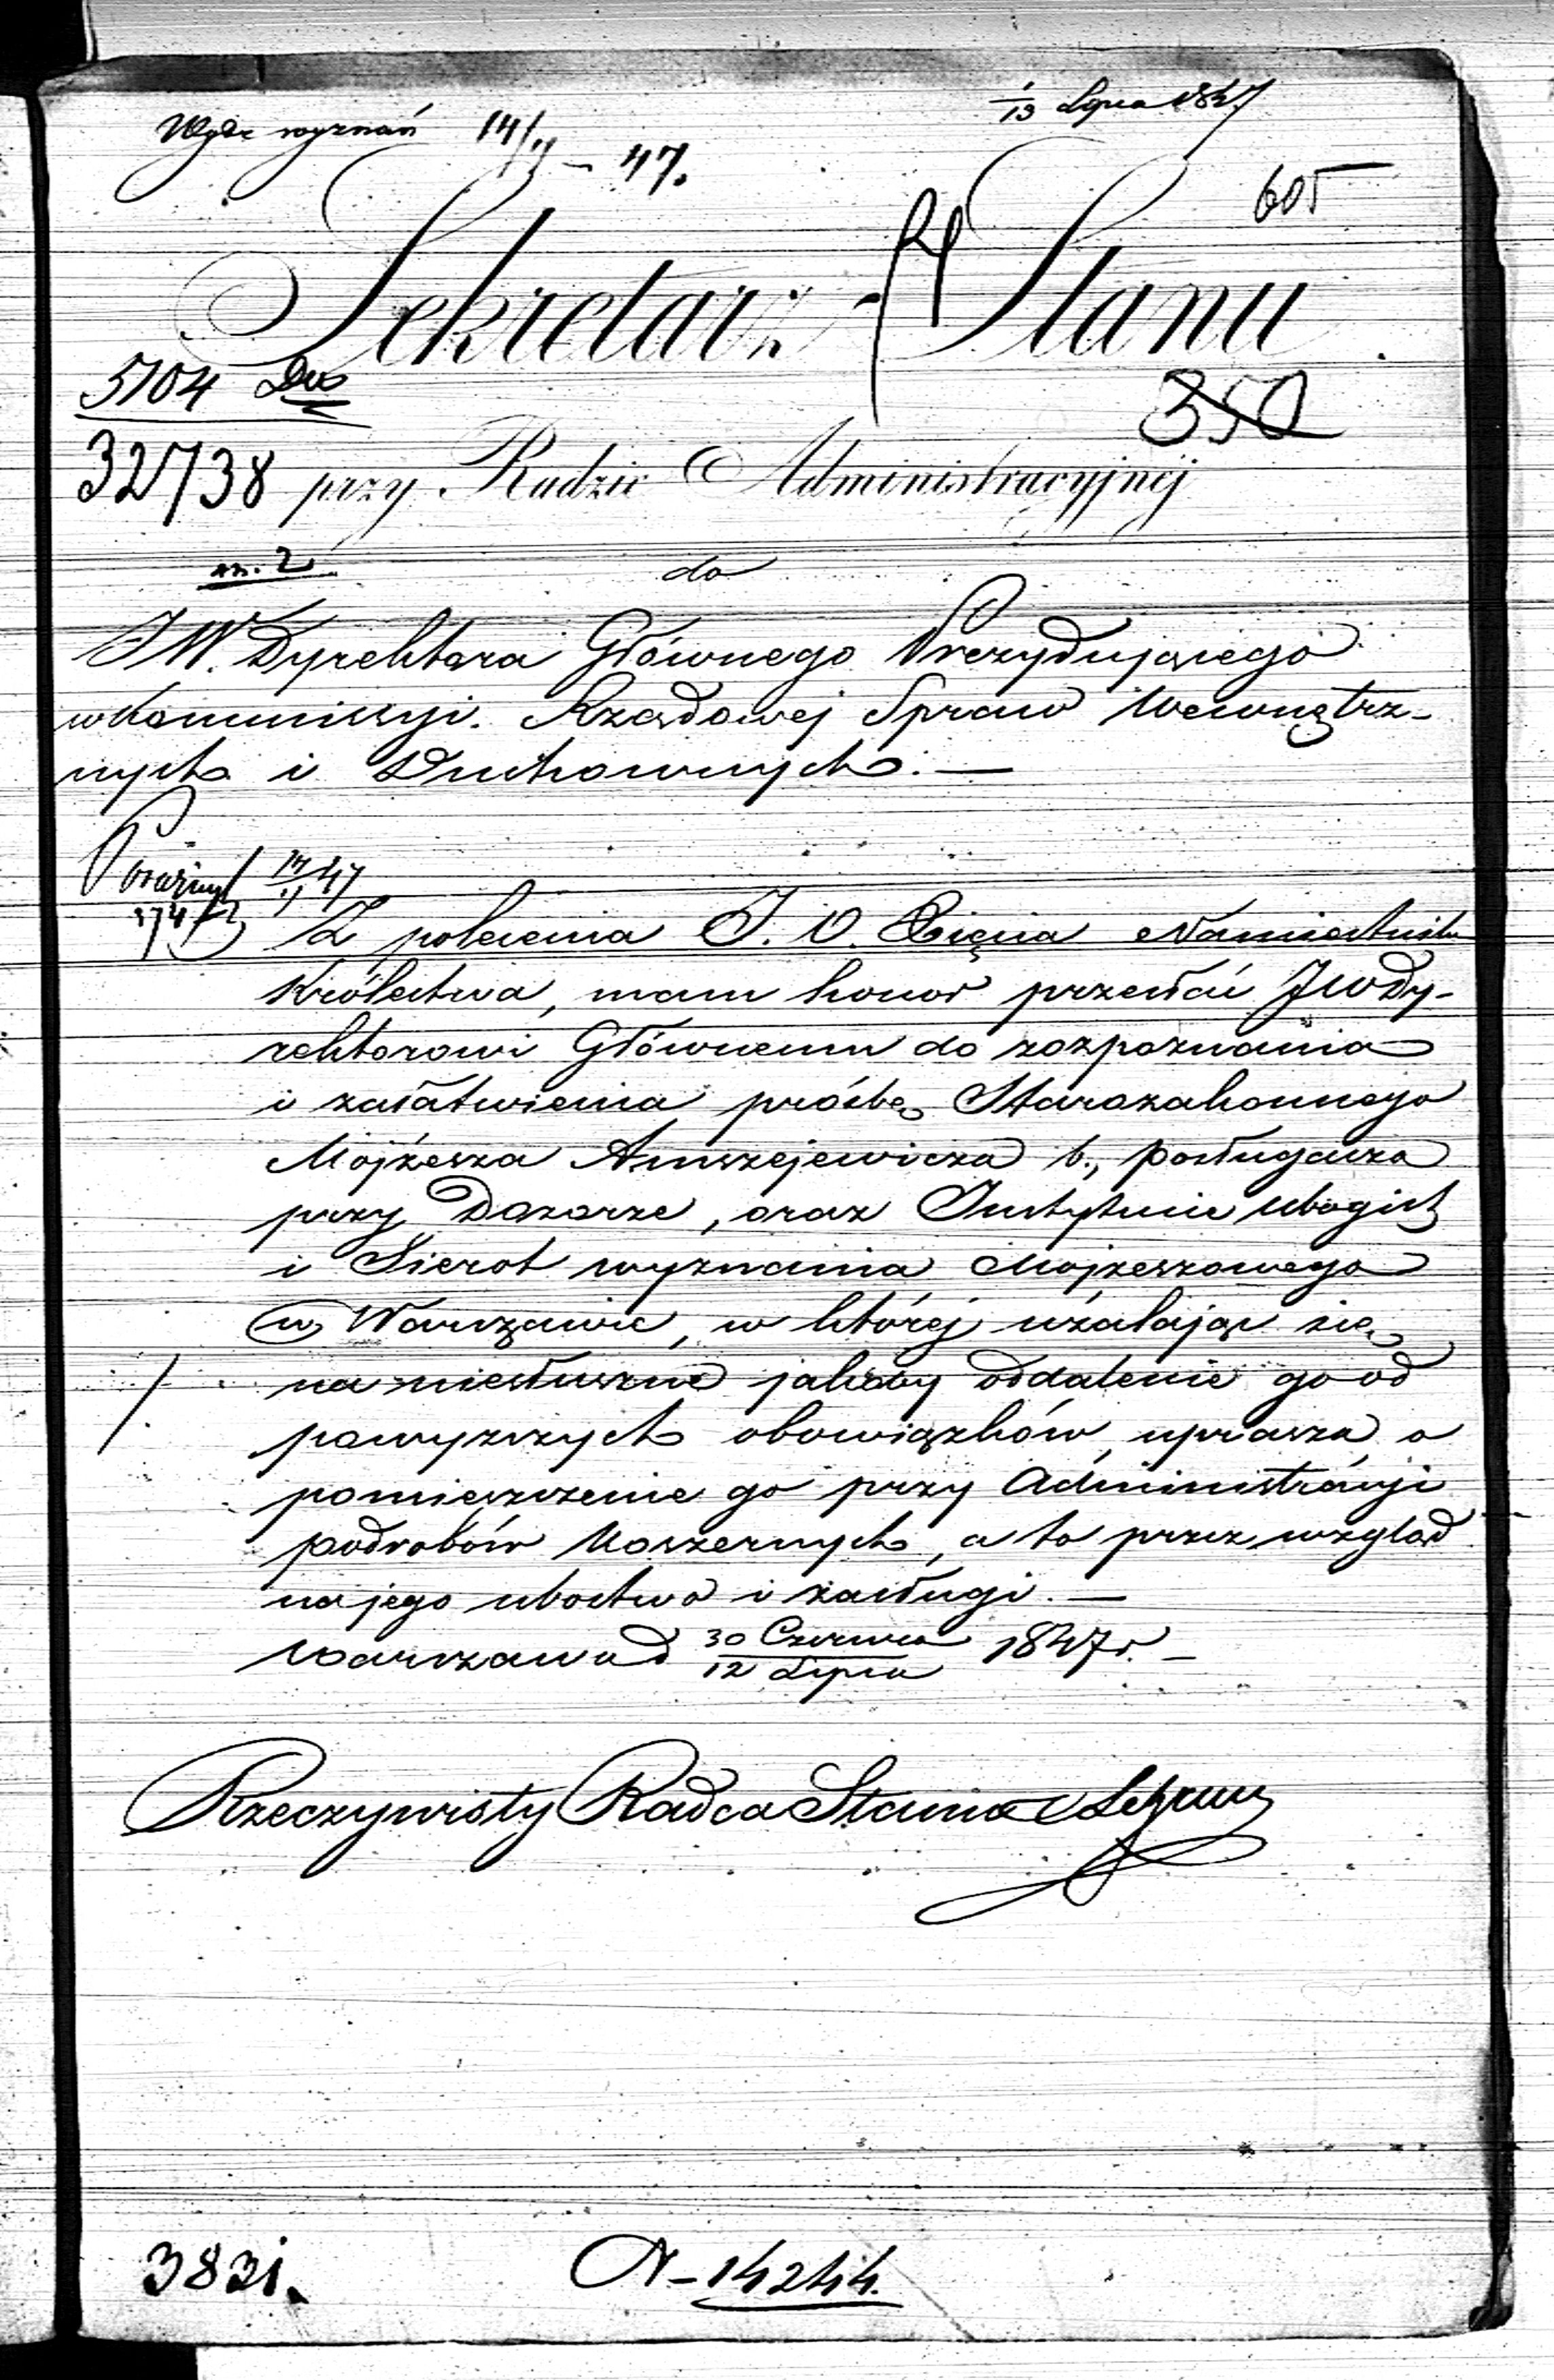 1/13 Lipca 1847
Wydz wyznań 14/7 - 47.
605
Sekretarz Stanu
5104
350
32738 przy Radzie Administracyjnej
m. 2
do
JW. Dyrektora Głównego Prezydującego
w Kommissyi Rządowej Spraw Wewnętrz-
nych i Duchownych. —
47
Z polecenia J. O. Xięcia Namiestnika
Królestwa, mam honor przesłać JW Dy-
rektorowi Głównemu do rozpoznania
i załatwienia prośbę Starozakonnego
Mojżesza Amszejewicza b., posługacza
przy Dozorze, oraz Instytucie ubogich
i Sierot wyznania Mojżeszowego
w Warszawie, w której użalając się
na niesłuszne jakoby oddalenie go od
powyższych obowiązków, uprasza o
pomieszczenie go przy Administracyi
podrobów Koszernych, a to przez wzgląd
na jego ubóstwo i zasługi. —
Warszawa d 30 Czerwca / 12 Lipca 1847 r. —
Rzeczywisty Radca Stanu
3831.
N - 14244.